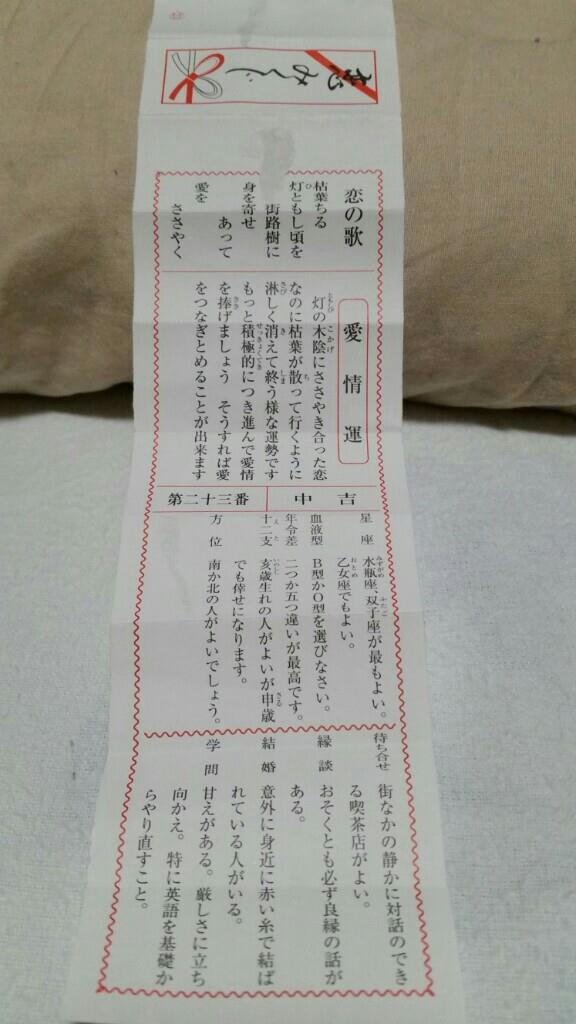 恋みくじ
恋の歌
枯葉ちる
灯ともし頃を
街路樹に
身を寄せ
あって
愛を
ささやく
愛情運
灯の木陰にささやき合った恋
なのに枯葉が散って行くように
淋しく消えて終う様な運勢です
もっと積極的につき進んで愛情
を捧げましょう そうすれば愛
をつなぎとめることが出来ます
第二十三番 中吉
星座 水瓶座、双子座が最もよい。
乙女座でもよい。
血液型 B型かO型を選びなさい。
年令差 二つか五つ違いが最高です。
十二支 亥歳生れの人がよいが申歳
でも倖せになります。
方位 南か北の人がよいでしょう。
待ち合せ 街なかの静かに対話のでき
る喫茶店がよい。
縁談 おそくとも必ず良縁の話が
ある。
結婚 意外に身近に赤い糸で結ば
れている人がいる。
学問 甘えがある。厳しさに立ち
向かえ。特に英語を基礎か
らやり直すこと。